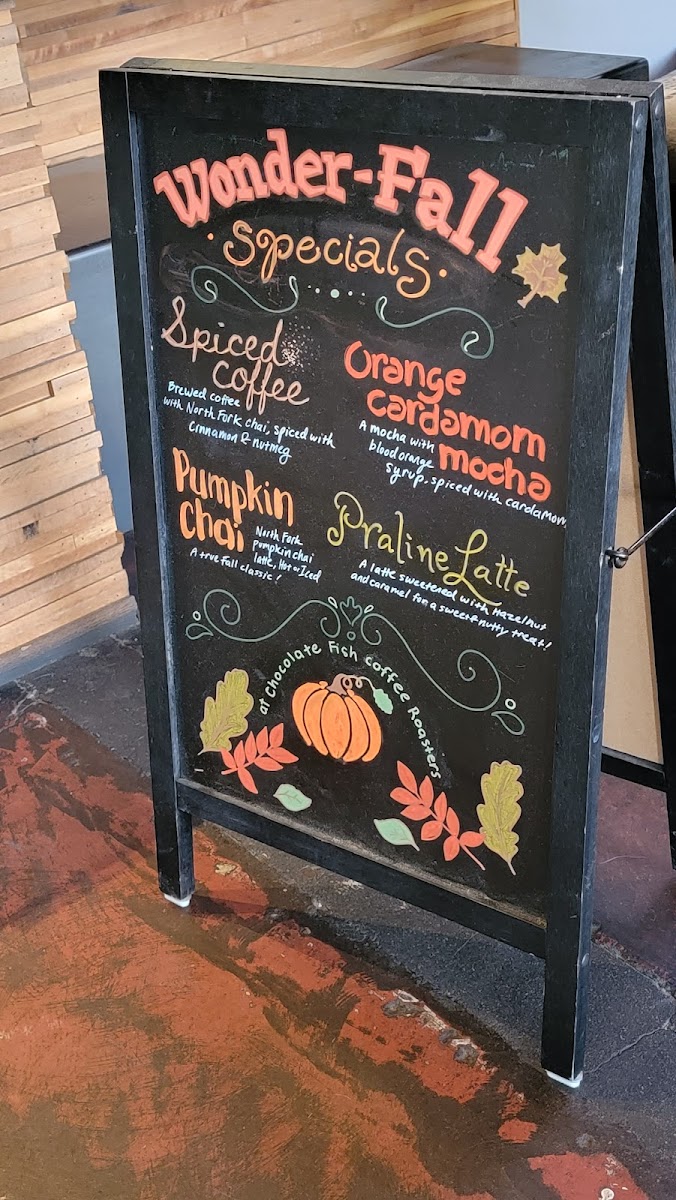 Wonder-Fall
·specials·
Spiced
Coffee
Brewed coffee
with North Fork chai, spiced with
cinnamon & nutmeg
Orange
Cardamom
mocha
A mocha with
blood orange
syrup, spiced with cardamom
Pumpkin
Chai
North Fork
pumpkin chai
latte, Hot or Iced
A true Fall classic!
Praline Latte
A latte sweetened with Hazelnut
and caramel for a sweet & nutty treat!
at Chocolate Fish Coffee Roasters